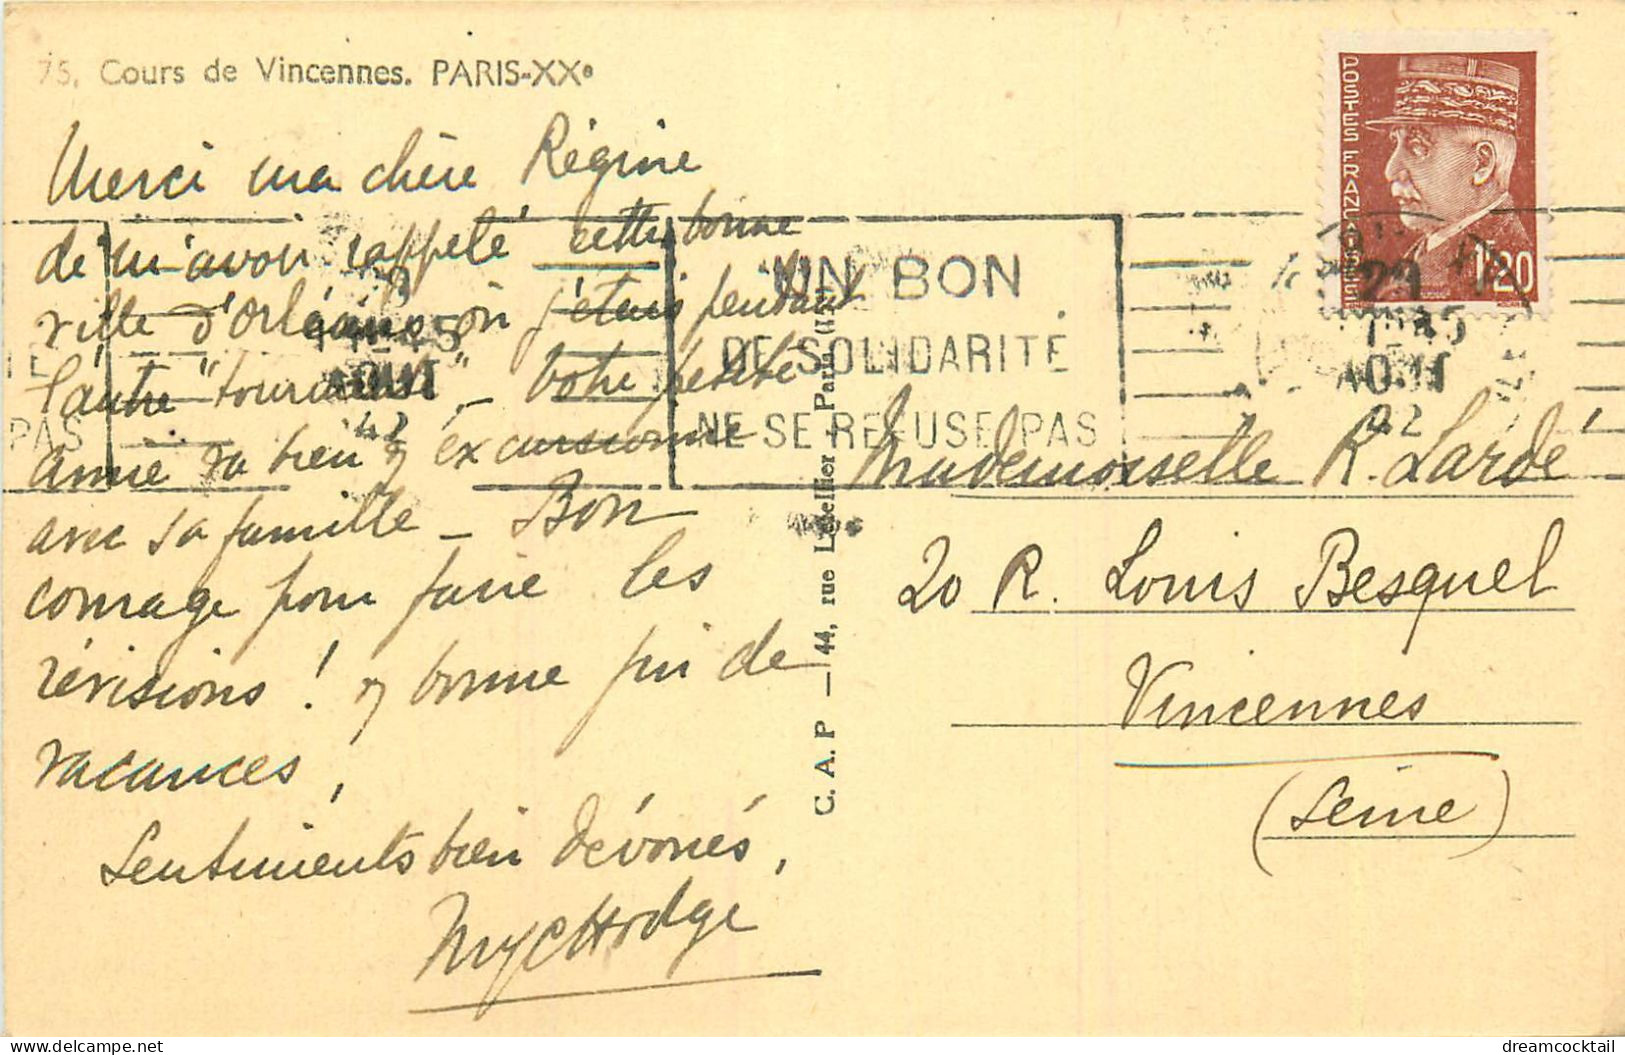 75. Cours de Vincennes. PARIS-XXe
Merci ma chère Régine
de m'avoir rappelé cette bonne
ville d'Orléans, où j'étais pendant
l'autre "tourmente" _ Votre petite
amie va bien & excursionne
avec sa famille _ Bon
courage pour faire les
révisions ! & bonne fin de
vacances,
Sentiments bien dévoués,
C. A. P — 44, rue Letellier — Paris
UN BON
DE SOLIDARITÉ
NE SE REFUSE PAS
PAS
AOUT
42
POSTES FRANÇAISES
1F20
29
AOUT
42
Mademoiselle R. Lardé
20 R. Louis Besquel
Vincennes
(Seine)
dreamcocktail
delcampe.net